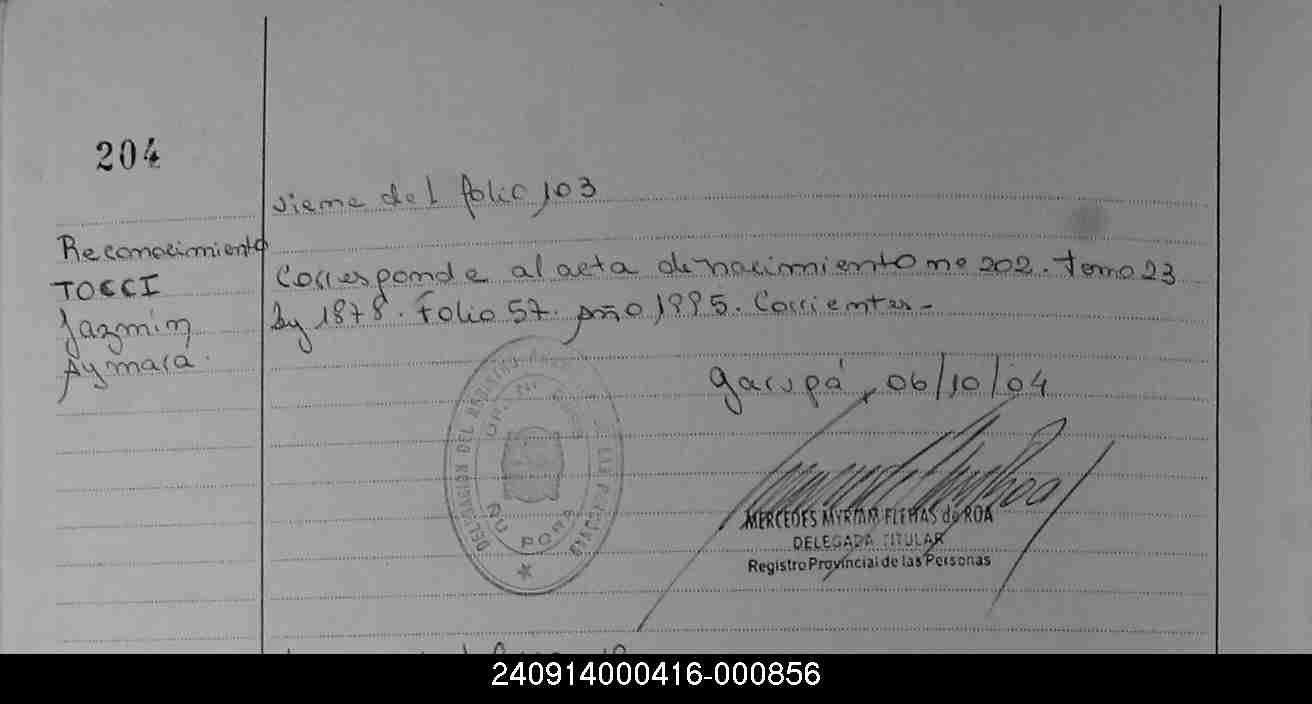 204
viene del folio 103
Reconocimiento
TOCCI
Jazmín
Aymara.
Corresponde al acta de nacimiento nº 202. tomo 23
Ley 1878. Folio 57. año 1995. Corrientes-
Garupá, 06/10/04
DELEGACION DEL REGISTRO
LAS PERSONAS
ÑU PORA
MERCEDES MYRIAM FLEITAS de ROA
DELEGADA TITULAR
Registro Provincial de las Personas
240914000416-000856